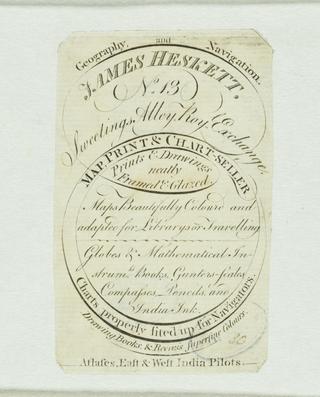 Geography, and Navigation.
JAMES HESKETT.
No. 13
Sweetings Alley Roy. Exchange.
MAP, PRINT & CHART-SELLER
Prints & Drawings
neatly
Framed & Glazed.
Maps Beautifully Colour'd and
adapted for Librarys or Travelling
Globes & Mathematical In-
strum.ts Books, Gunters-scales
Compasses, Pencils, and
India Ink.
Charts properly fited up for Navigators.
Drawing Books, & Reeves's superfine Colours.
Atlases, East & West India Pilots.